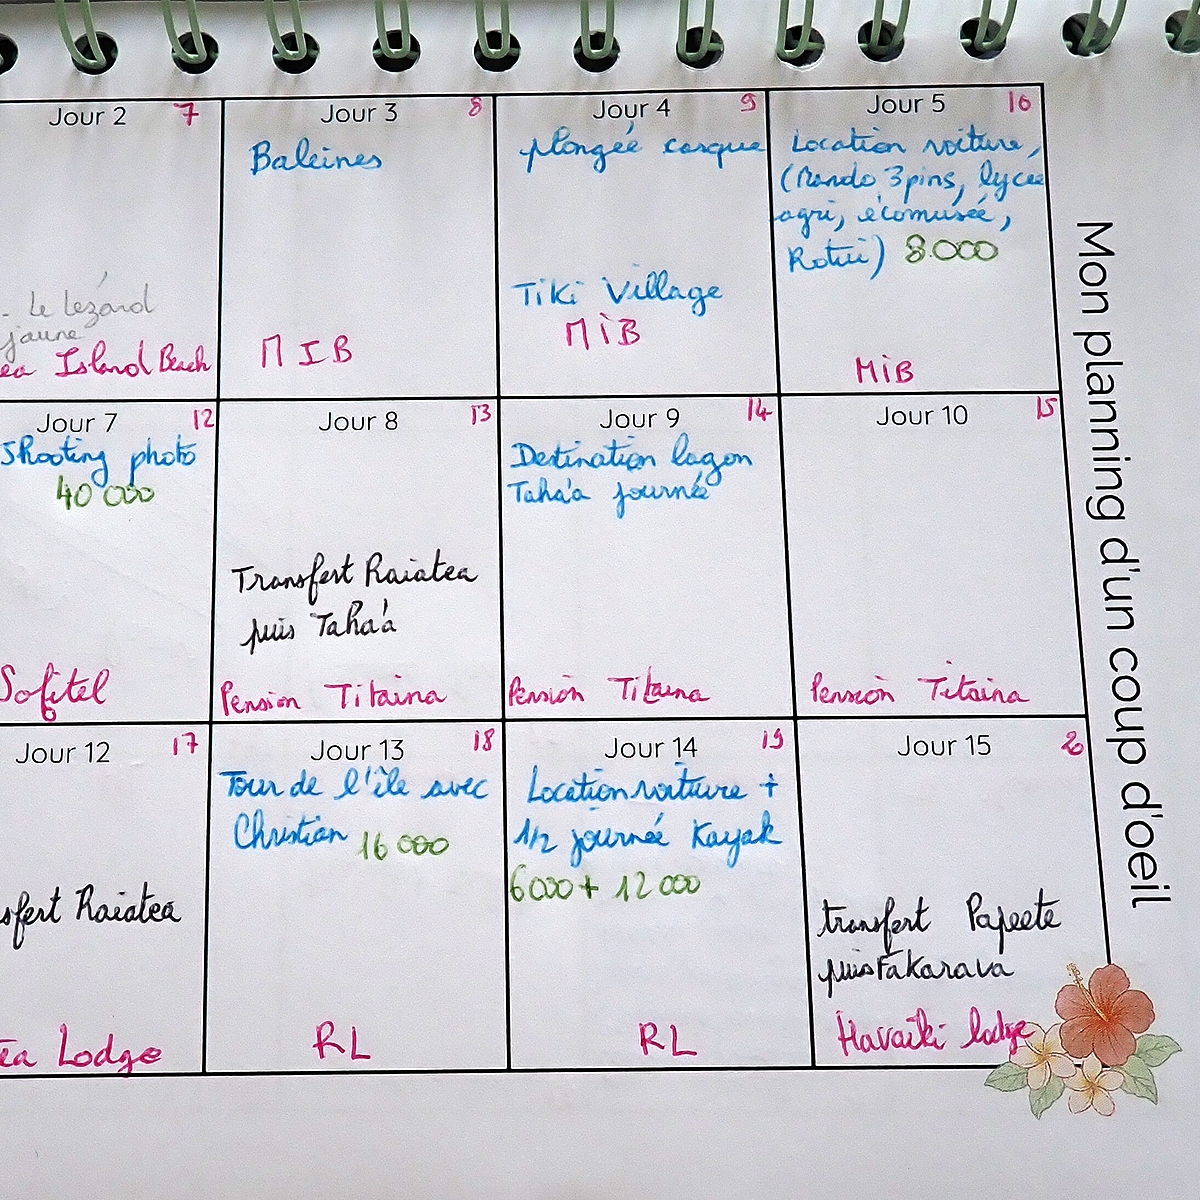 Jour 2 7
- Le lézard
jaune
ea Island Beach
Jour 3 8
Baleines
MIB
Jour 4 9
plongée casque
Tiki Village
MiB
Jour 5 10
Location voiture,
(Rando 3pins, lycée
agri, écomusée,
Rotui) 8.000
MiB
Jour 7 12
Shooting photo
40 000
Sofitel
Jour 8 13
Transfert Raiatea
puis Taha'a
Pension Titaina
Jour 9 14
Destination lagon
Taha'a journée
Pension Titaina
Jour 10 15
Pension Titaina
Jour 12 17
sfert Raiatea
ea Lodge
Jour 13 18
Tour de l'île avec
Christian 16 000
RL
Jour 14 19
Location voiture +
1/2 journée Kayak
6000 + 12 000
RL
Jour 15
transfert Papeete
puis Fakarava
Havaiki lodge
Mon planning d'un coup d'oeil